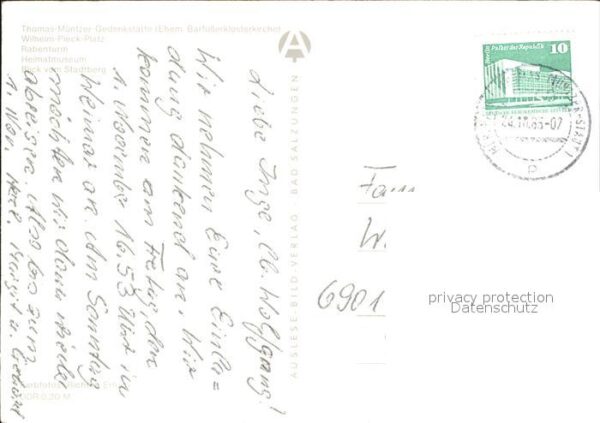 Thomas-Müntzer Gedenkstätte (Ehem. Barfüßerklosterkirche)
Wilhelm-Pieck-Platz
Rabenturm
Heimatmuseum
Blick vom Stadtberg
Liebe Inge, lb. Wolfgang!
Wir nehmen Eure Einla=
dung dankend an. Wir
kommen am Freitag, den
1. November 16.53 Uhr in
Weimar an. Am Sonntag
möchten wir dann wieder
abreisen. Also bis zum
1. Nov. Herzl.
DDR 0,20 M
AUSLESE-BILD-VERLAG · BAD SALZUNGEN
Berlin Palast der Republik
10
DEUTSCHE DEMOKRATISCHE REPUBLIK
-07
Fam
W.
6901
privacy protection
Datenschutz